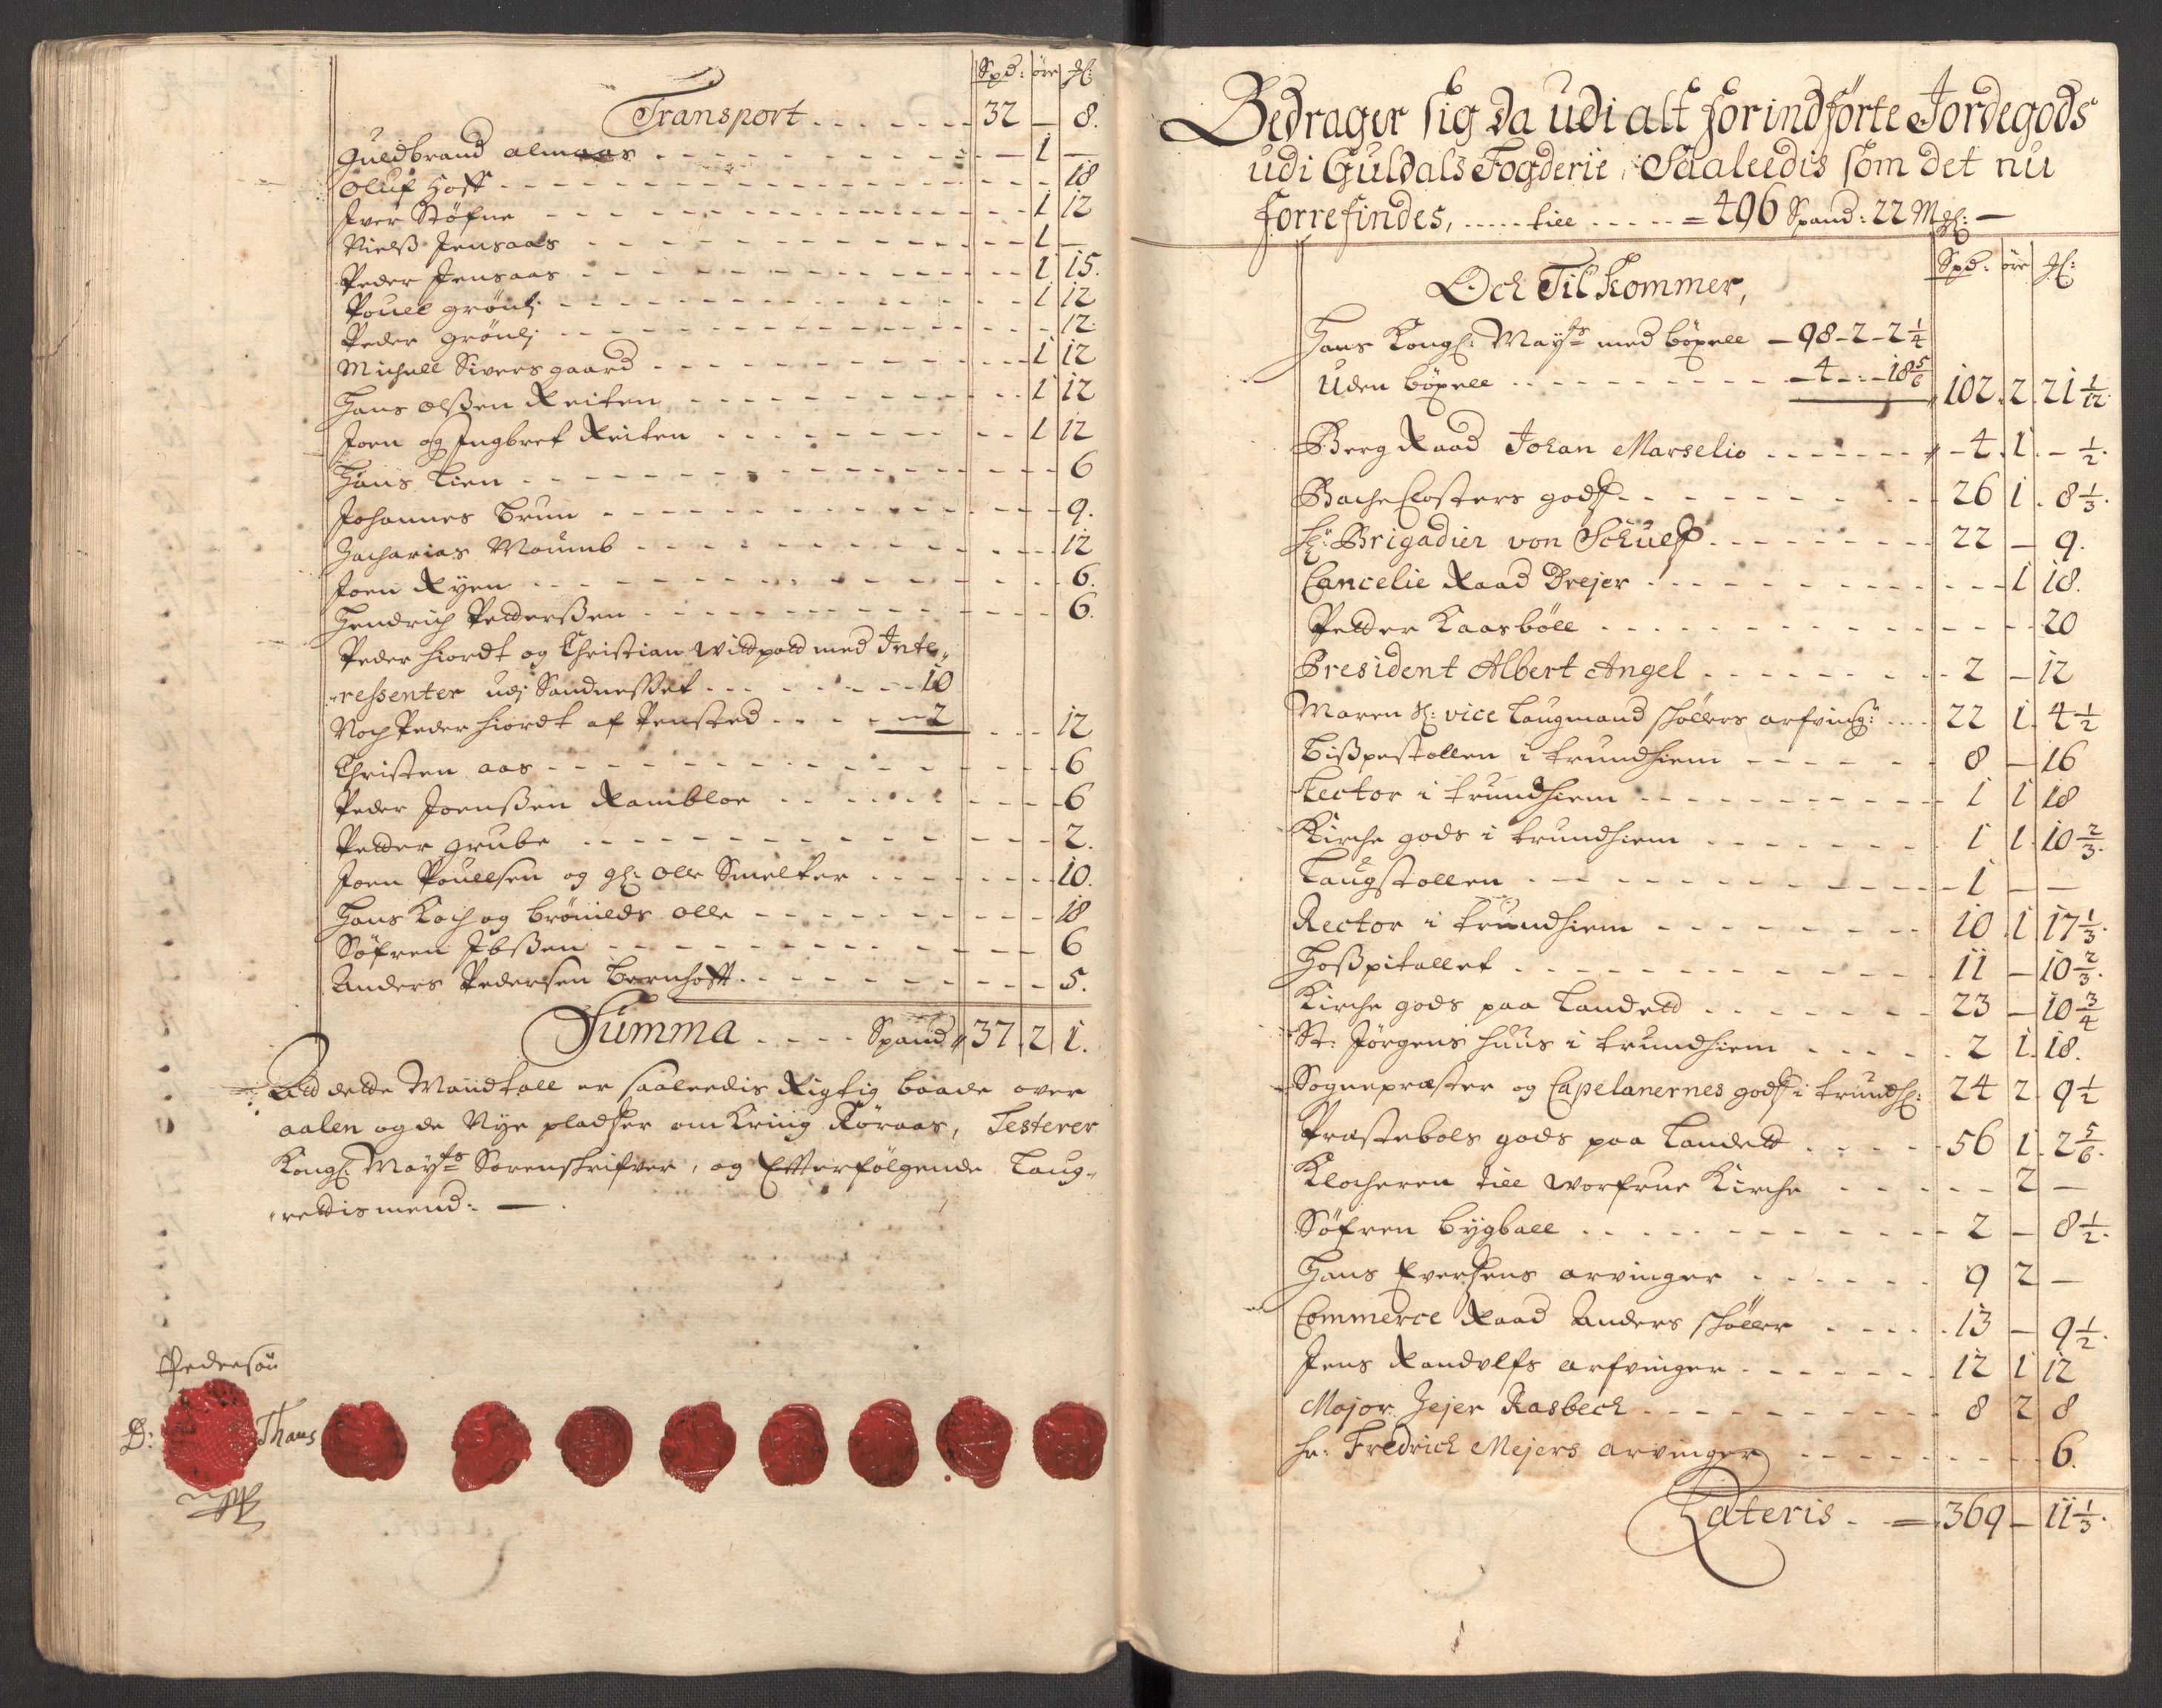 Spd: öre ꝳl:
Transport . . . . . . . 32 — 8.
Guldbrand almaas . . . — 1 —
Oluf Hoff . . . 18
Iver Stöfne . . . 1 12
Nielß Jensaas . . . 1 —
Peder Jensaas . . . 1 15.
Pouel Grönli . . . 1 12
Peder Grönli . . . 12.
Michell Siversgaard . . . 1 12
Hans Olßen Reiten . . . 1 12
Joen og Ingbret Reiten . . . 1 12
Hans Lien . . . 6
Johannes Brun . . . 9.
Zacharias Maumb . . . 12
Joen Ryen . . . 6.
Hendrich Pedderßen . . . 6.
Peder Hiordt og Christian Wildpold med Inte„
„ressenter udj Sandnesset . . . 10
Noch Peder Hiordt af Pensted . . . 2 . . . 12
Christen aas . . . 6
Peder Joenßen Rambloe . . . 6
Pedder Grube . . . 2.
Joen Pouelsen og gl: Olle Smelter . . . 10.
Hans Koch og Brönilds Olle . . . 18
Söfren Ibßen . . . 6
Anders Pedersen Bernhoft . . . 5.
Summa . . . . Spand 37. 2 1.
At dette Mandtall er saaledis Rigtig baade over
aalen og de Nye pladser omkring Röraas, Testerer
Kongl: Mayts Sorenskrifver, og Efterfölgende Laug-
rettismend: —
Pedersön
D: Thaus
Bedrager sig da udi alt for indförte Jordegods
udi Guldals Fogderie, Saaledis som det nu
forrefindes, ..... till ..... = 496 Spand: 22 Mꝳl: —
Spd: öre ꝳl:
Och Tilkommer,
Hans Kongl: Mayts med böxell — 98 - 2 - 2 1/4
Uden böxell . . . — 4 - : - 18 5/6 102. 2. 21 1/12
Berg Raad Johan Marselio . . . 4. 1. — 1/2.
Bache Closters gods . . . 26 1. 8 1/3.
Hr: Brigadier von Schults . . . 22 — 9.
Cancelie Raad Drejer . . . 1 18.
Pedder Kaasböll . . . 20
President Albert Angel . . . 2 — 12
Maren Sl: vice Laugmand Schöllers arfving: . . . 22 1. 4 1/2
Bißpestollen i trundhiem . . . 8 — 16
Lector i trundhiem . . . 1 1 18
Kirche gods i trundhiem . . . 1 1. 10 2/3.
Laugstollen . . . 1 — —
Rector i trundhiem . . . 10 1 17 1/3.
Hoßpitallet . . . 11 — 10 2/3.
Kirche gods paa Landett . . . 23 — 10 3/4
St: Jörgens huus i trundhiem . . . 2 1. 18.
Sognepræster og Capelanernes gods i trundh: 24 2 9 1/2
Præstebols gods paa Landett . . . 56 1. 2 5/6.
Klocheren till Worfrue Kirche . . . 2 —
Söfren Bygball . . . 2 — 8 1/2.
Hans Eversens arvinger . . . 9 2 —
Commerce Raad Anders Schöller . . . 13 — 9 1/2.
Jens Randulfs arfvinger . . . 12 1 12
Major Zejer Rasbech . . . 8 2 8
Hr: Fredrich Mejers arvinger . . . 6.
Lateris . = 369 — 11 1/3.